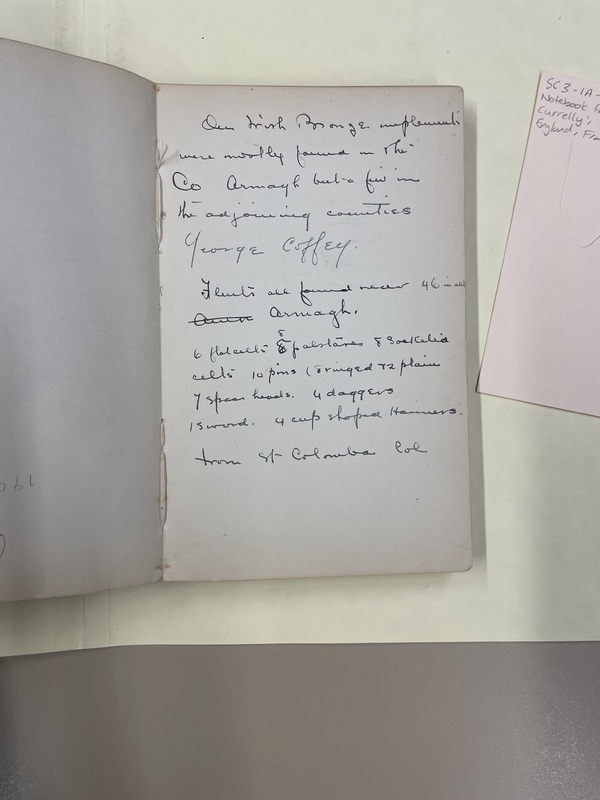 Our Irish Bronze implements
were mostly found in the
Co Armagh but a few in
the adjoining counties
George Coffey.
Flints all found near 46 in all
Armagh.
8
6 flat celts 8 palstaves 8 Socketed
celts 10 pins (8 ringed + 2 plain
7 spear heads. 4 daggers
1 sword. 4 cup shaped Hammers.
from St Columba Col
SC3-1A-
Notebook
Currelly's,
England, Fra
190